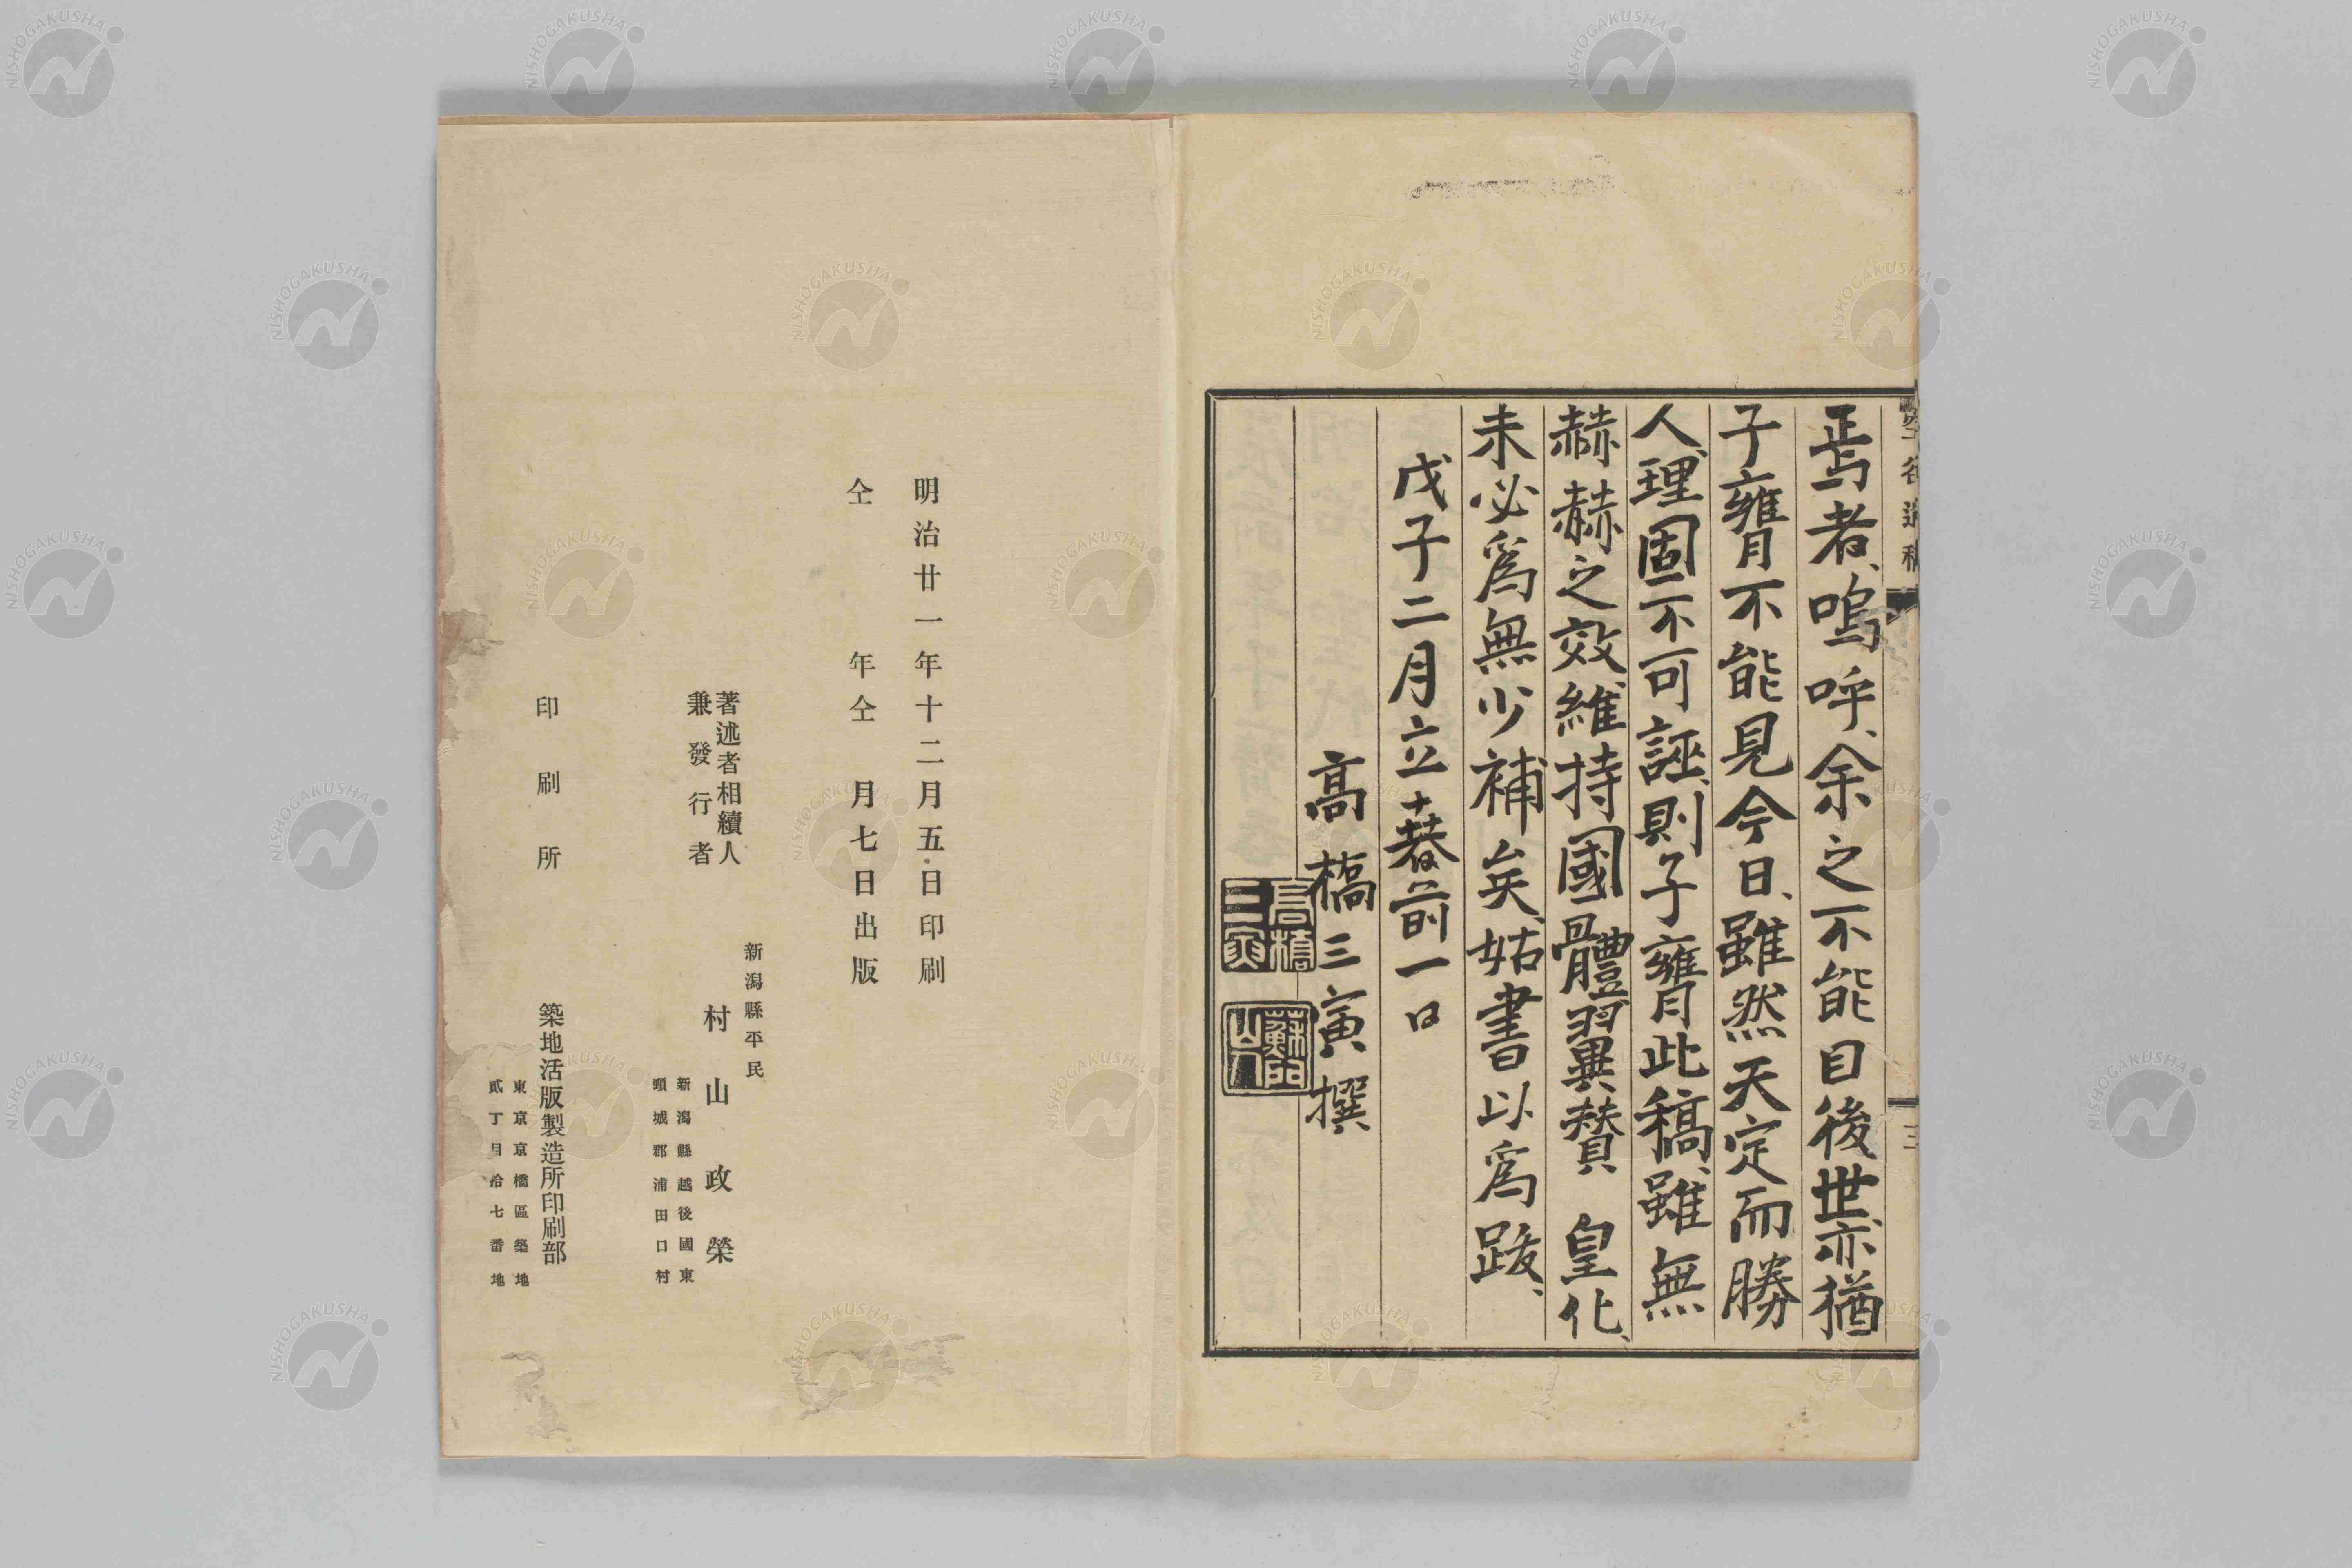 正焉者、嗚呼、余之不能目後世、亦猶
子寉月不能見今日、雖然天定而勝
人、理固不可誣、則子寉月此稿、雖無
赫赫之效、維持國體、翼賛　皇化、
未必爲無少補矣、姑書以爲跋、
戊子二月立春前一日
高橋三寅撰
高橋三寅
蘇門山人
三
明治廿一年十二月五日印刷
仝　年仝　月七日出版
新潟縣平民
著述者相續人
兼發行者
村山政榮
新潟縣越後國東
頸城郡浦田口村
印刷所
築地活版製造所印刷部
東京京橋區築地
貳丁目拾七番地
NISHOGAKUSHA